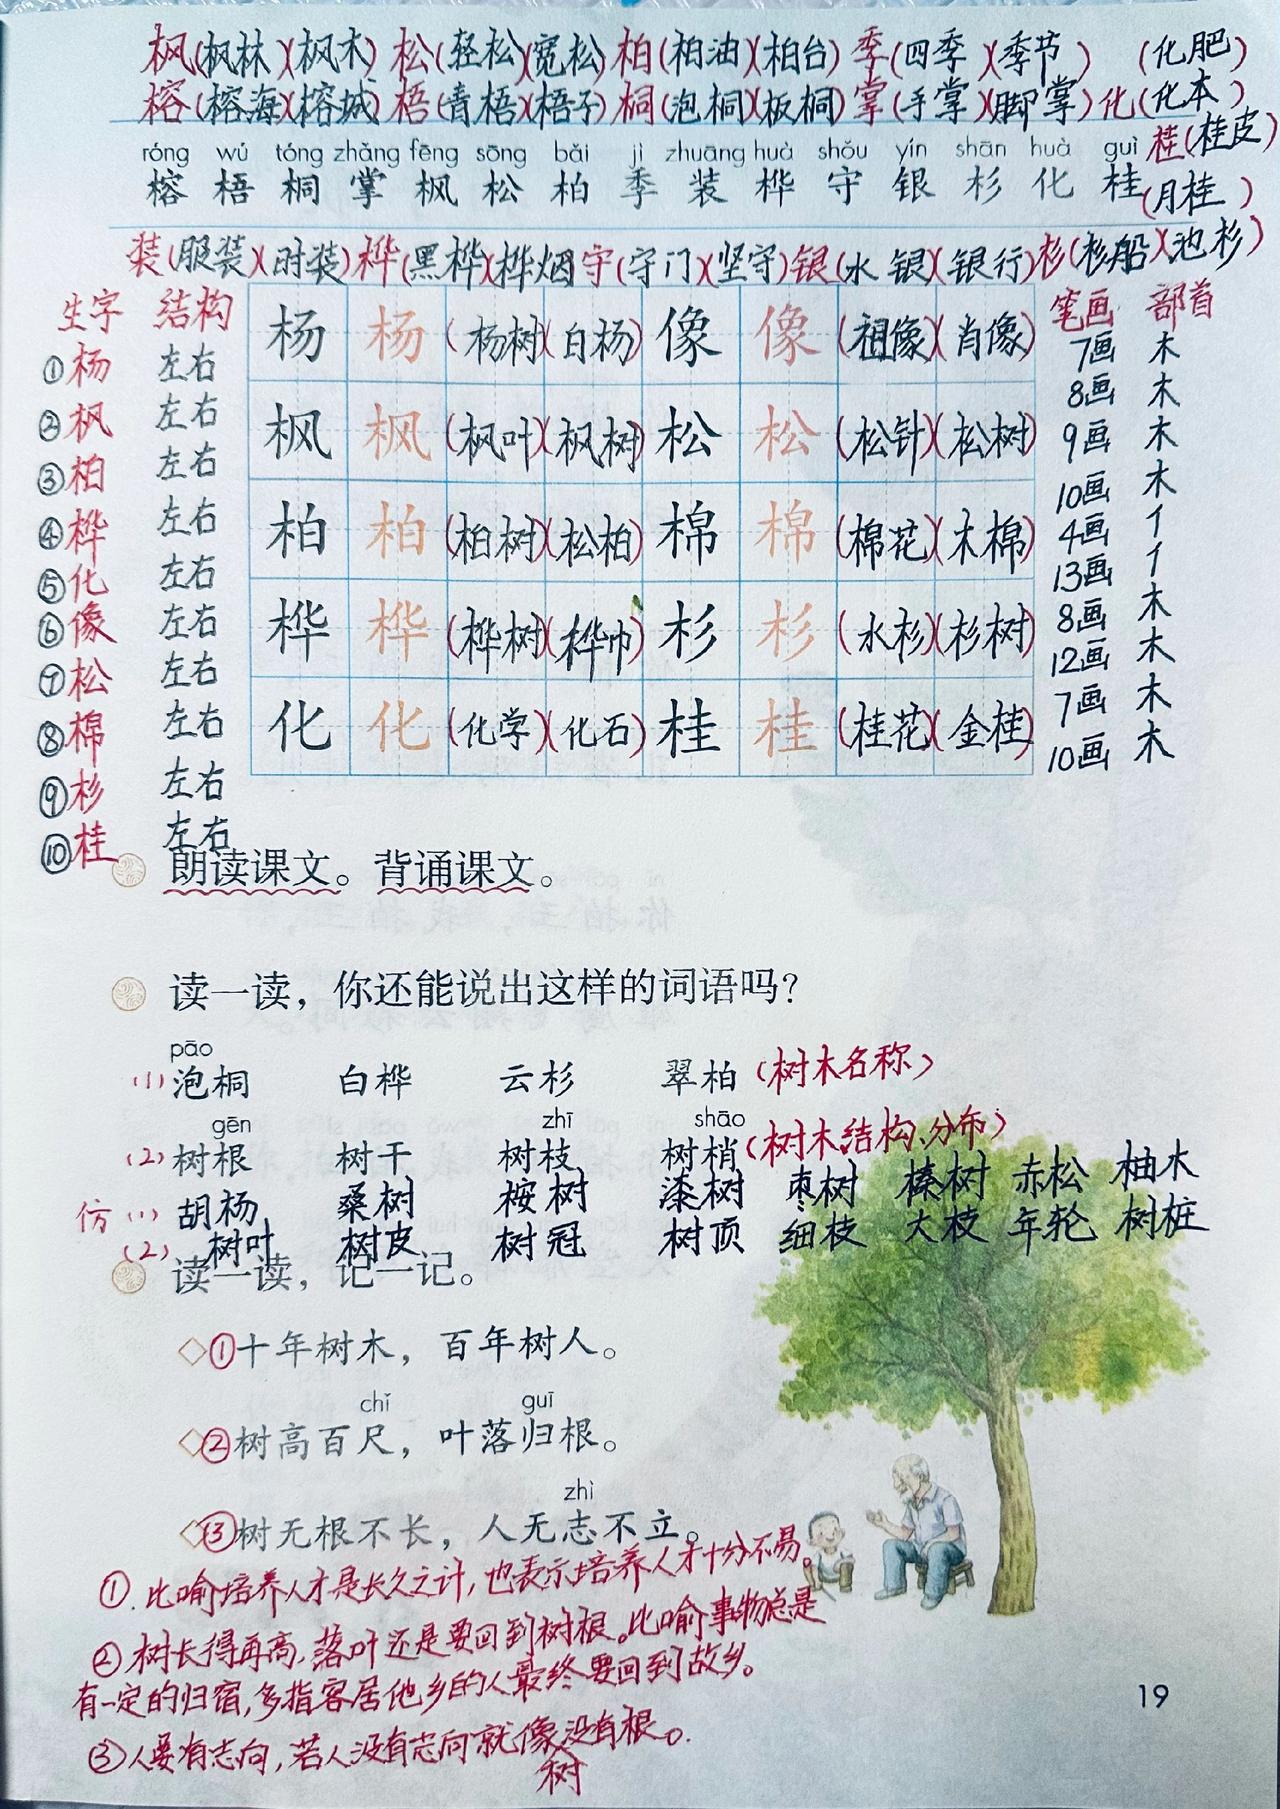 枫(枫林)(枫木) 松(轻松)(宽松) 柏(柏油)(柏台) 季(四季)(季节) (化肥)
榕(榕海)(榕城) 梧(青梧)(梧子) 桐(泡桐)(板桐) 掌(手掌)(脚掌) 化(化本)
róng wú tóng zhǎng fēng sōng bǎi jì zhuāng huà shǒu yín shān huà guì 桂(桂皮)
榕 梧 桐 掌 枫 松 柏 季 装 桦 守 银 杉 化 桂 (月桂)
装(服装)(时装) 桦(黑桦)(桦烟) 守(守门)(坚守) 银(水银)(银行) 杉(杉船)(池杉)
生字 结构 杨 杨 (杨树)(白杨) 像 像 (祖像)(肖像) 笔画 部首
①杨 左右 7画 木
②枫 左右 枫 枫 (枫叶)(枫树) 松 松 (松针)(松树) 8画 木
③柏 左右 9画 木
④桦 左右 柏 柏 (柏树)(松柏) 棉 棉 (棉花)(木棉) 10画 木
⑤化 左右 4画 亻
⑥像 左右 桦 桦 (桦树)(桦巾) 杉 杉 (水杉)(杉树) 13画 亻
⑦松 左右 8画 木
⑧棉 左右 化 化 (化学)(化石) 桂 桂 (桂花)(金桂) 12画 木
⑨杉 左右 7画 木
⑩桂 左右 10画 木
朗读课文。背诵课文。
读一读，你还能说出这样的词语吗？
pāo
(1) 泡桐 白桦 云杉 翠柏 (树木名称)
gēn zhī shāo
(2) 树根 树干 树枝 树梢 (树木结构、分布)
仿(1) 胡杨 桑树 桉树 漆树 枣树 榛树 赤松 柚木
(2) 树叶 树皮 树冠 树顶 细枝 大枝 年轮 树桩
读一读，记一记。
①十年树木，百年树人。
chǐ guī
②树高百尺，叶落归根。
zhì
③树无根不长，人无志不立。
①.比喻培养人才是长久之计,也表示培养人才十分不易。
②树长得再高,落叶还是要回到树根。比喻事物总是
有一定的归宿,多指客居他乡的人最终要回到故乡。
③人要有志向,若人没有志向就像没有根。
树
19